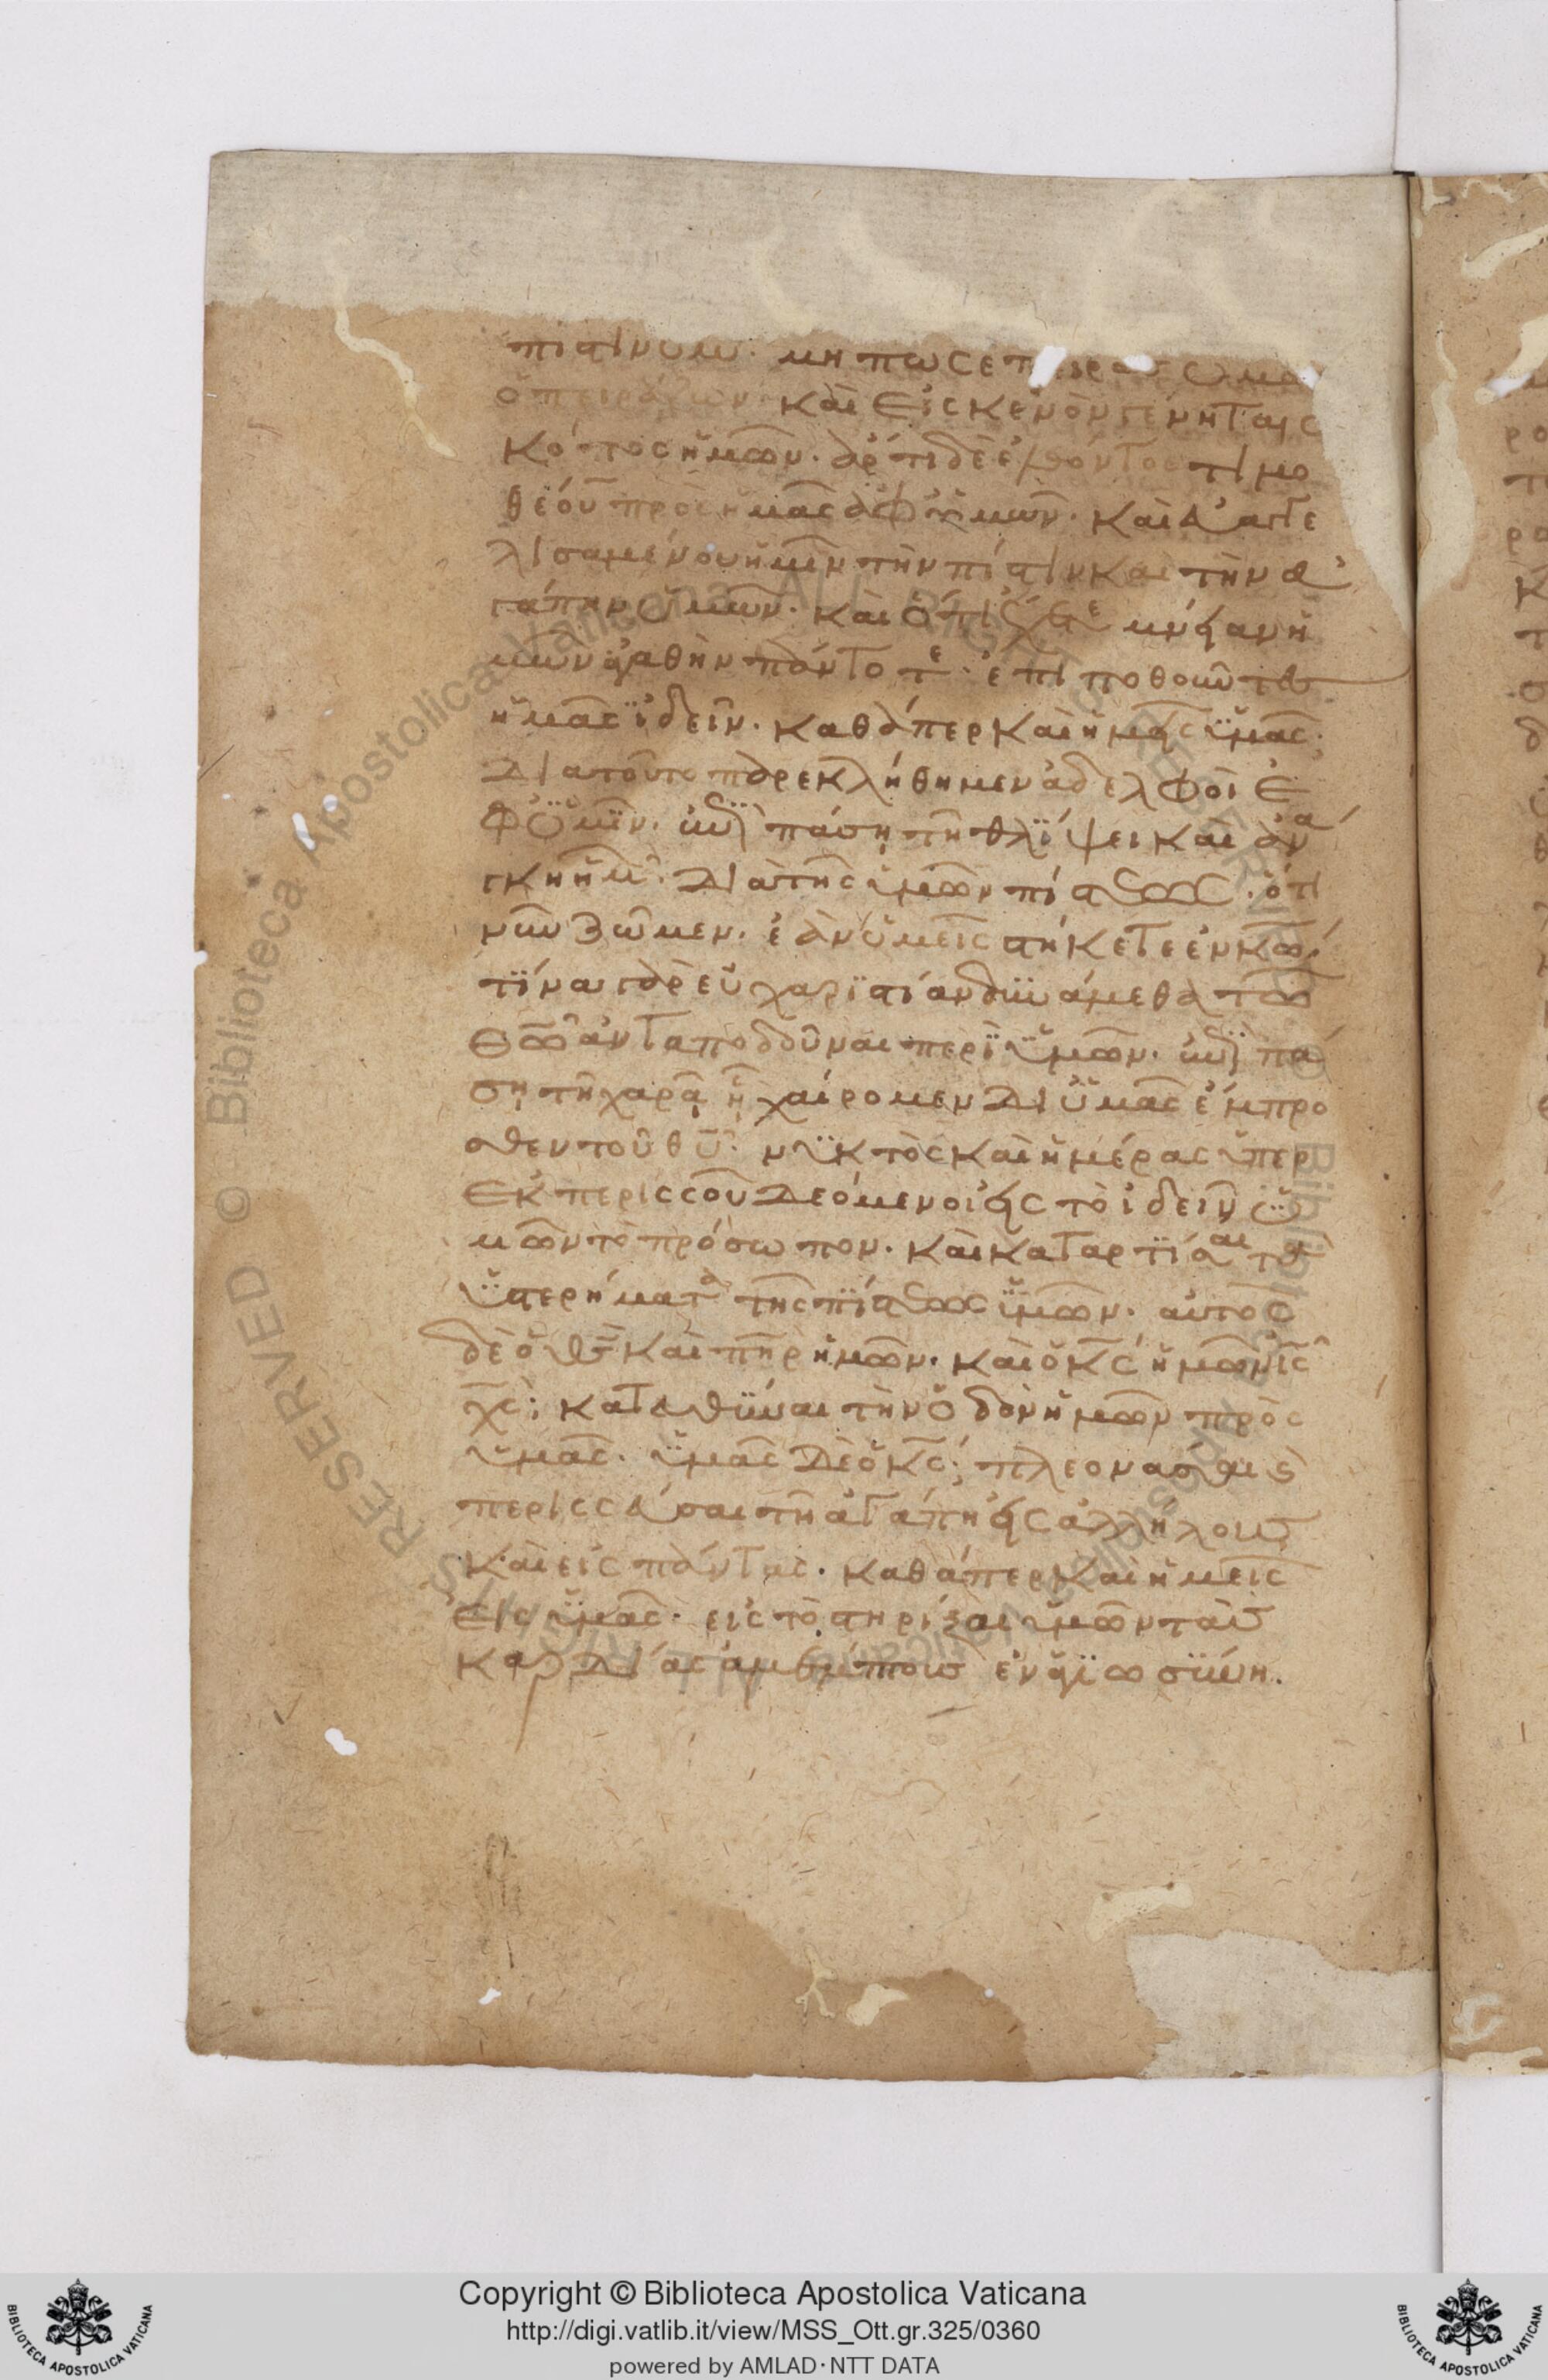 πίστιν ὑμῶν. μή πως ἐπείρασεν ὑμᾶς
ὁ πειράζων. καὶ εἰς κενὸν γένηται ὁ
κόπος ἡμῶν. ἄρτι δὲ ἐλθόντος τιμο
θέου πρὸς ἡμᾶς ἀφ' ὑμῶν. καὶ εὐαγγε
λισαμένου ἡμῖν τὴν πίστιν καὶ τὴν ἀ
γάπην ὑμῶν. καὶ ὅτι ἔχετε μνείαν ἡ
μῶν ἀγαθὴν πάντοτε. ἐπιποθοῦντες
ἡμᾶς ἰδεῖν. καθάπερ καὶ ἡμεῖς ὑμᾶς.
διατοῦτο παρεκλήθημεν ἀδελφοὶ ἐ
φ' ὑμῖν. ἐπὶ πάση τῆ θλίψει καὶ ἀνά
γκη ἡμῶν. διὰ τῆς ὑμῶν πίστεως. ὅτι
νῦν ζῶμεν. ἐὰν ὑμεῖς στήκετε ἐν κω.
τίνα γὰρ εὐχαριστίαν δυνάμεθα τῶ
θω ἀνταποδοῦναι περὶ ὑμῶν. ἐπὶ πά
ση τῆ χαρᾶ ἧ χαίρομεν δι' ὑμᾶς ἔμπρο
σθεν τοῦ θυ. νυκτὸς καὶ ἡμέρας ὑπὲρ
ἐκπερισσοῦ δεόμενοι εἰς τὸ ἰδεῖν ὑ
μῶν τὸ πρόσωπον. καὶ καταρτίσαι τὰ
ὑστερήματα τῆς πίστεως ὑμῶν. αὐτὸς
δὲ ὁ θς καὶ πηρ ἡμῶν. καὶ ὁ κς ἡμῶν ις
χς. κατευθύναι τὴν ὁδὸν ἡμῶν πρὸς
ὑμᾶς. ὑμᾶς δὲ ὁ κς. πλεονάσαι καὶ
περισσεύσαι τῆ ἀγάπη εἰς ἀλλήλους
καὶ εἰς πάντας. καθάπερ καὶ ἡμεῖς
εἰς ὑμᾶς. εἰς τὸ στηρίξαι ὑμῶν τὰς
καρδίας ἀμέμπτους ἐν ἁγιωσύνη.
Copyright © Biblioteca Apostolica Vaticana
http://digi.vatlib.it/view/MSS_Ott.gr.325/0360
powered by AMLAD·NTT DATA